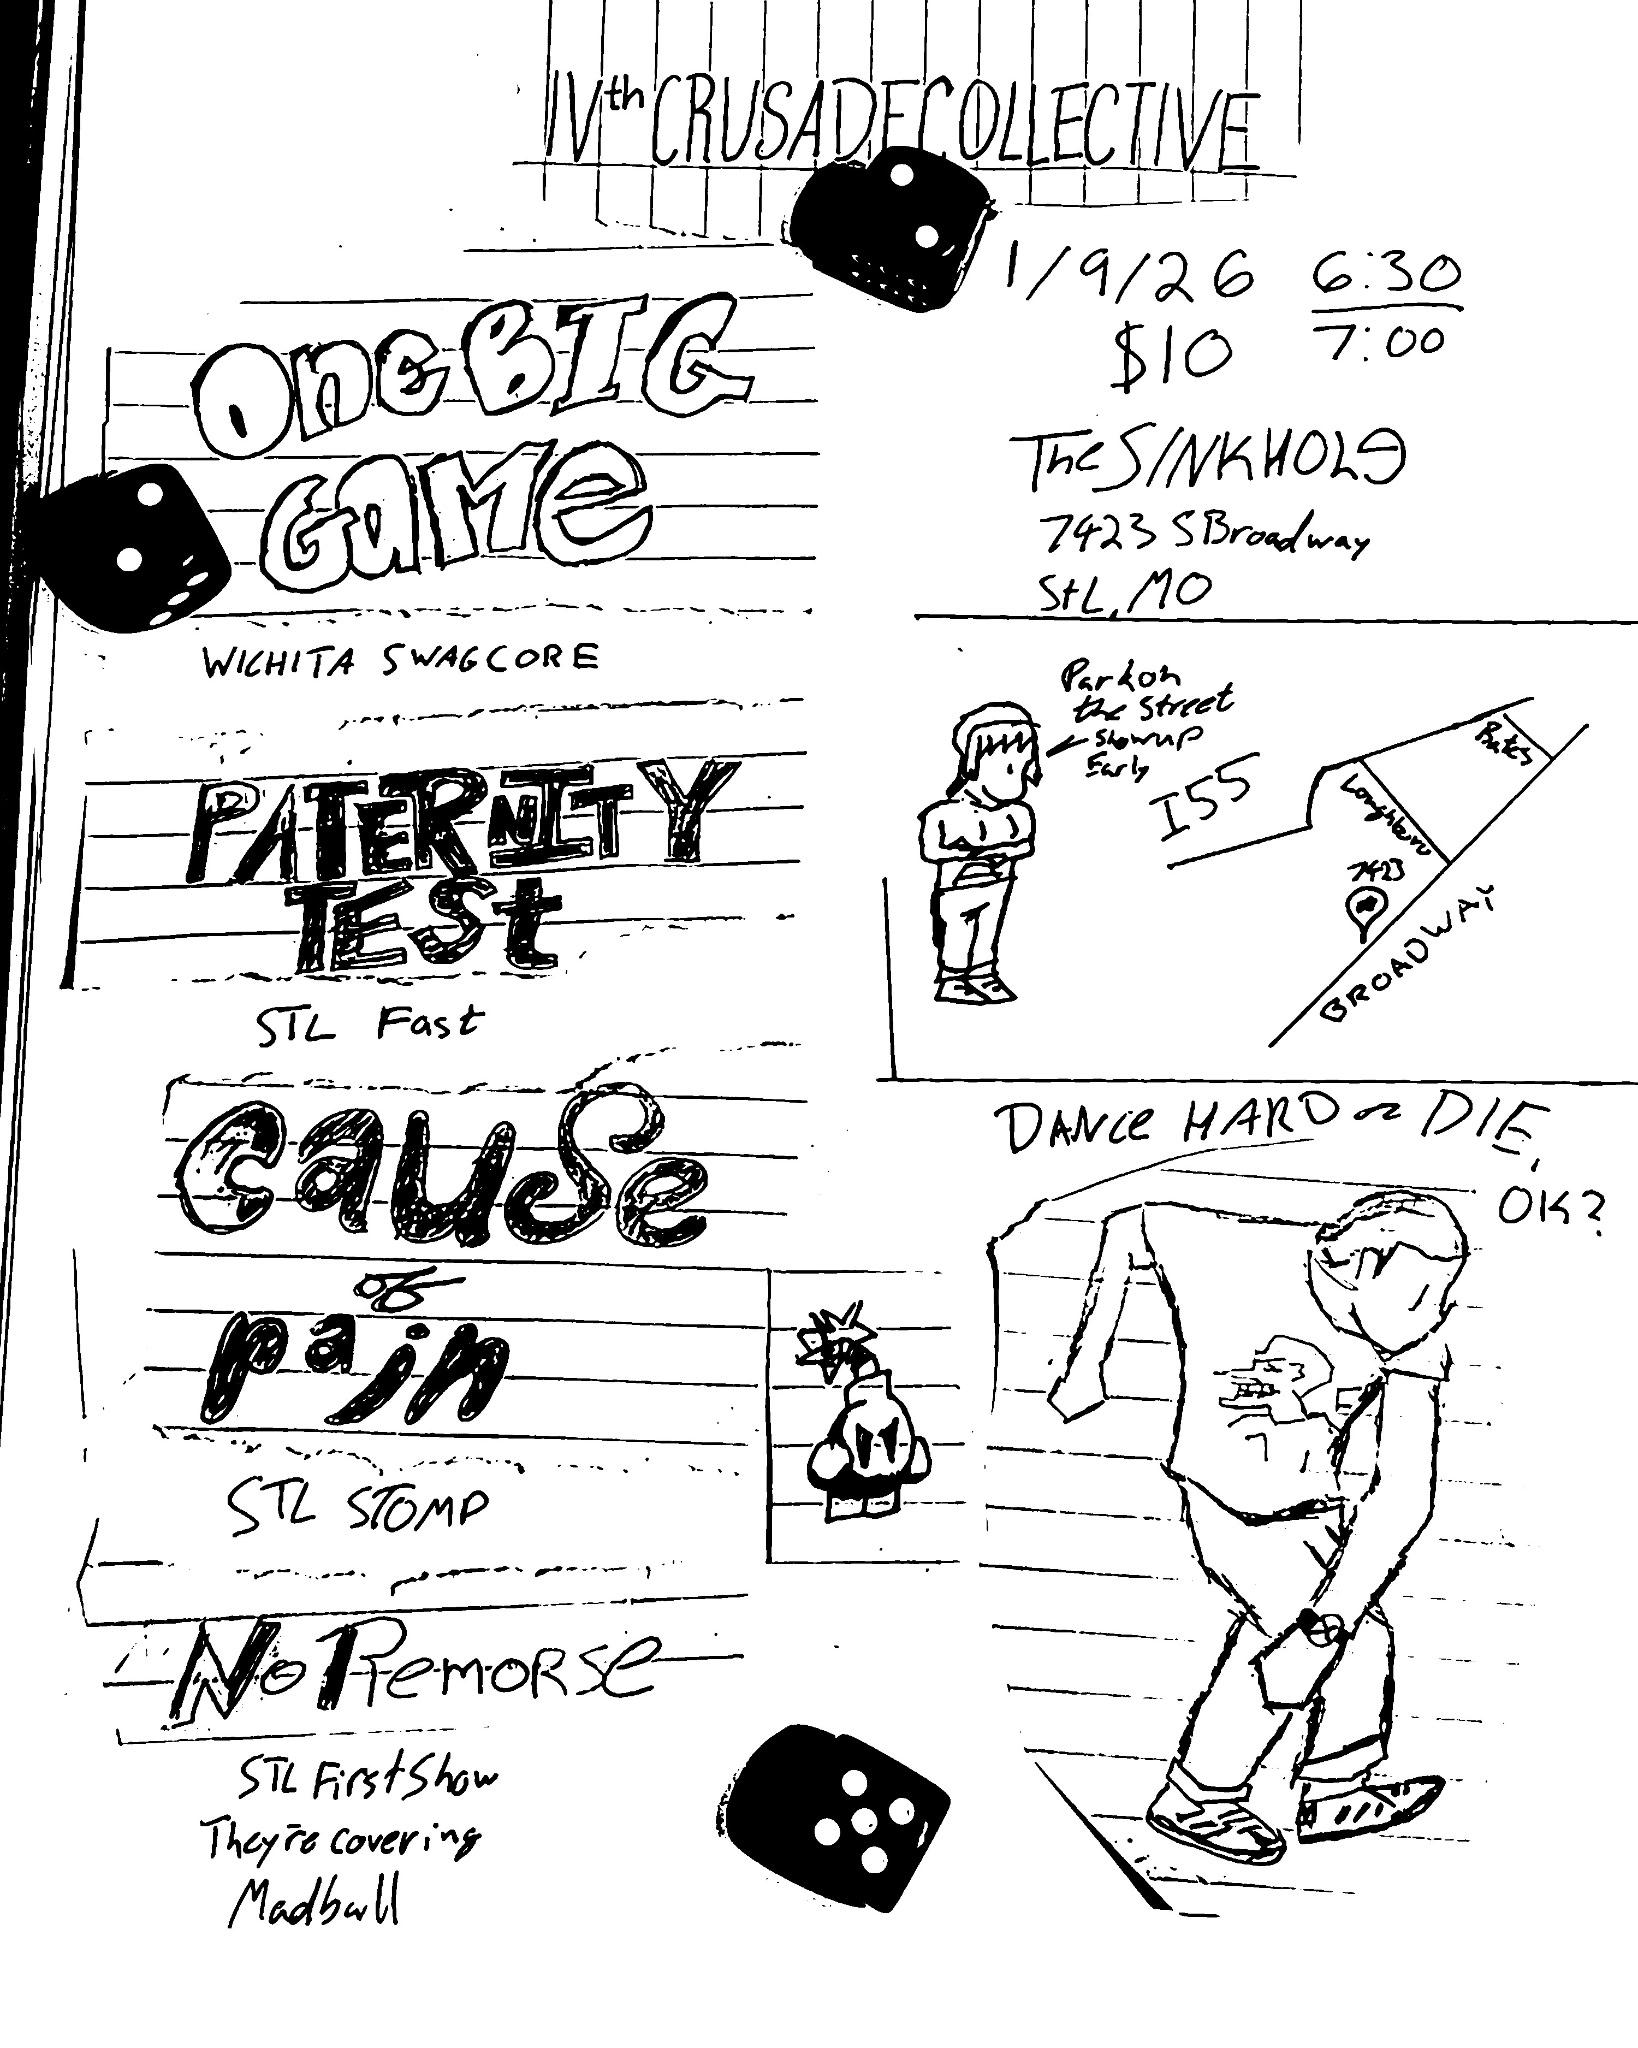 IVth CRUSADE COLLECTIVE
1/9/26 6:30
7:00
$10
The SINKHOLE
7423 S Broadway
StL, MO
One BIG
Game
WICHITA SWAGCORE
PATERNITY
TEST
STL Fast
Cause
of
Pain
STL STOMP
No Remorse
STL First Show
They're covering
Madball
Park on
the street
Show up
Early
I55
Bates
Loughboro
7423
BROADWAY
DANCE HARD or DIE,
OK?